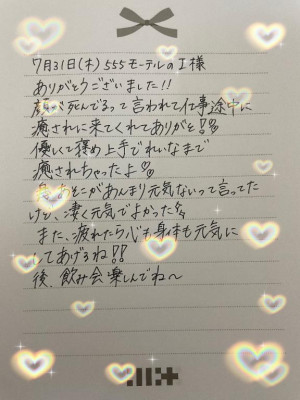 7月31日(木)555モーテルのI様
ありがとうございました!!
顔が死んでるって言われて仕事途中に
癒されに来てくれてありがと!!
優しくて褒め上手でれいなまで
癒されちゃったよ♡
あそこがあんまり元気ないって言ってた
けど、凄く元気でよかった
また、疲れたら心も身体も元気に
してあげるね!!
後、飲み会楽しんでね〜